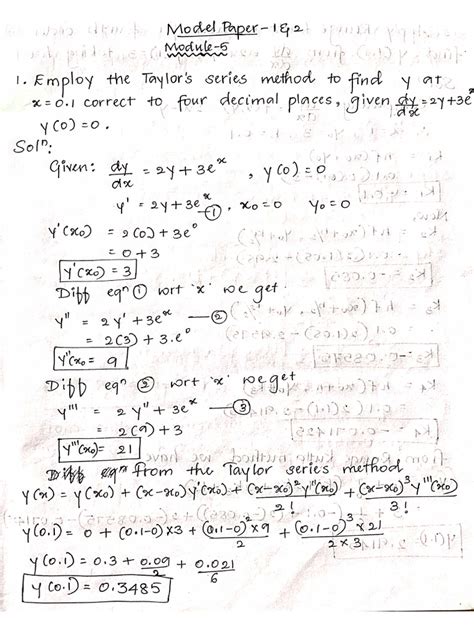 Model Paper - 1 & 2
Module-5
1. Employ the Taylor's series method to find y at
x = 0.1 correct to four decimal places, given dy/dx = 2y + 3e^x
y(0) = 0.
Solⁿ:
Given: dy/dx = 2y + 3e^x , y(0) = 0
y' = 2y + 3e^x —①, x₀ = 0 y₀ = 0
y'(x₀) = 2(0) + 3e⁰
= 0 + 3
y'(x₀) = 3
Diff eqⁿ ① wrt 'x' we get.
y'' = 2y' + 3e^x —②
= 2(3) + 3.e⁰
y''(x₀ = 9
Diff eqⁿ ② wrt 'x' we get
y''' = 2y'' + 3e^x —③
= 2(9) + 3
y'''(x₀) = 21
from the Taylor series method
y(x) = y(x₀) + (x-x₀)y'(x₀) + (x-x₀)² y''(x₀)/2! + (x-x₀)³ y'''(x₀)/3!
y(0.1) = 0 + (0.1-0)×3 + (0.1-0)²×9/2 + (0.1-0)³×21/2×3
y(0.1) = 0.3 + 0.09/2 + 0.021/6
y(0.1) = 0.3485